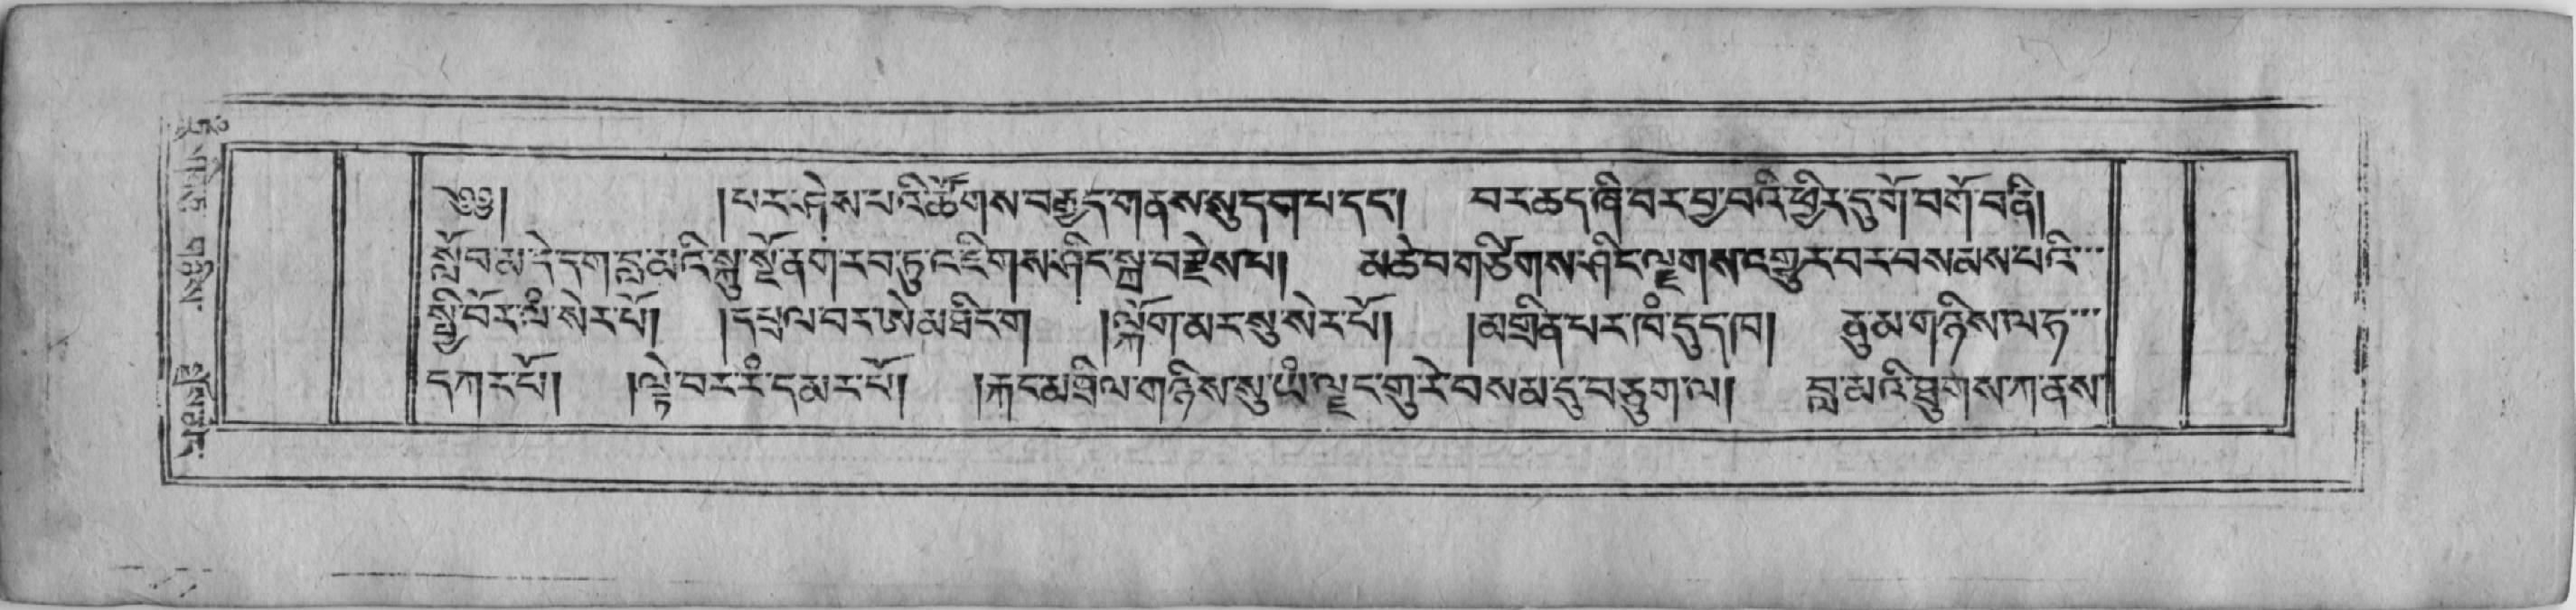 ༄༅། །པ་ར་ཤེས་པའི་ཚོགས་བརྒྱད་གནས་སུ་དག་པ་དང༌། བར་ཆད་ཞི་བར་བྱ་བའི་ཕྱིར་དུ་གོ་བགོ་བ་ནི།
སློབ་མ་དེ་དག་བླ་མའི་སྐུ་སྔོན་ག་རབ་ཏུ་ངརིགས་ཤིང་སྐྲ་བརྫེས་པ། མཆེ་བ་གཙིགས་ཤིང་ལྗགས་འགྱུར་བར་བསམས་པའི་
སྤྱི་བོར་ལཾ་སེར་པོ། །དཔྲལ་བར་ཨེ་མཐིང་ག །ལྐོག་མར་སུ་སེར་པོ། །མགྲིན་པར་ཁཾ་དུད་ཁ། ནུམ་གཉིས་ལ་ཧ་
དཀར་པོ། །ལྟེ་བར་རཾ་དམར་པོ། །རྐང་མཐིལ་གཉིས་སུ་ཡཾ་ལྗང་གུར་བསམ་དུ་བཅུག་ལ། བླ་མའི་ཐུགས་ཀ་ནས་